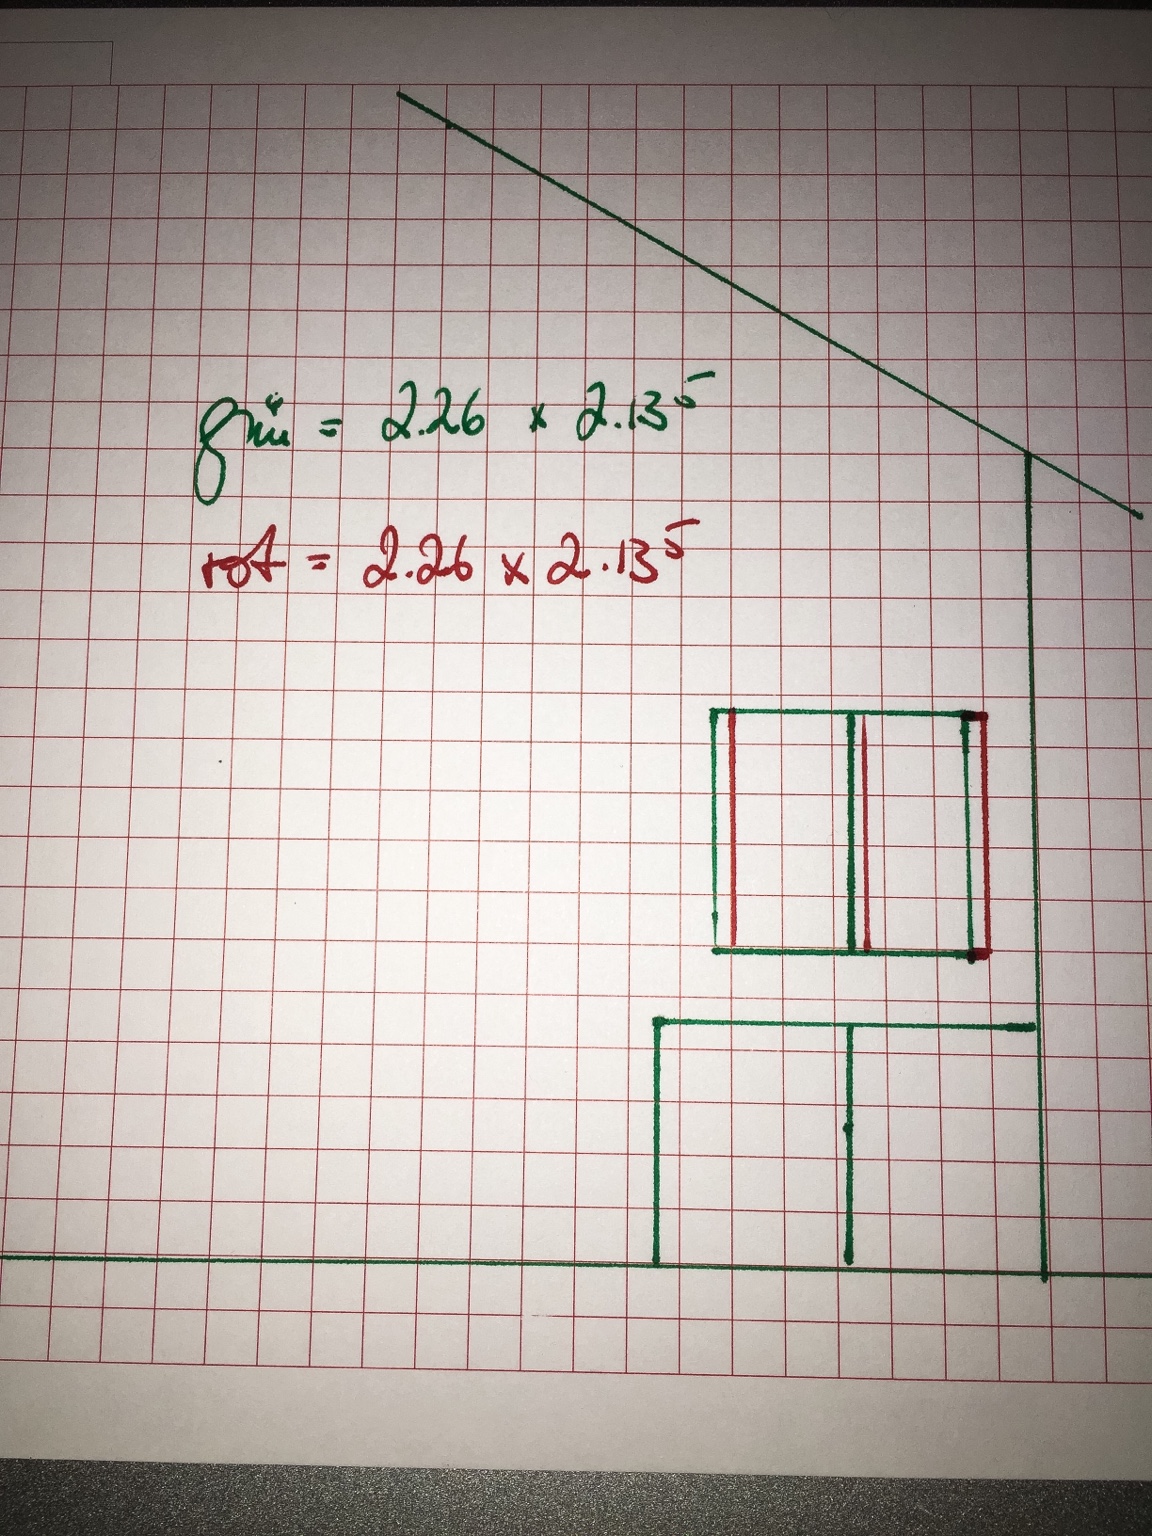 grün = 2.26 x 2.13⁵
rot = 2.26 x 2.13⁵